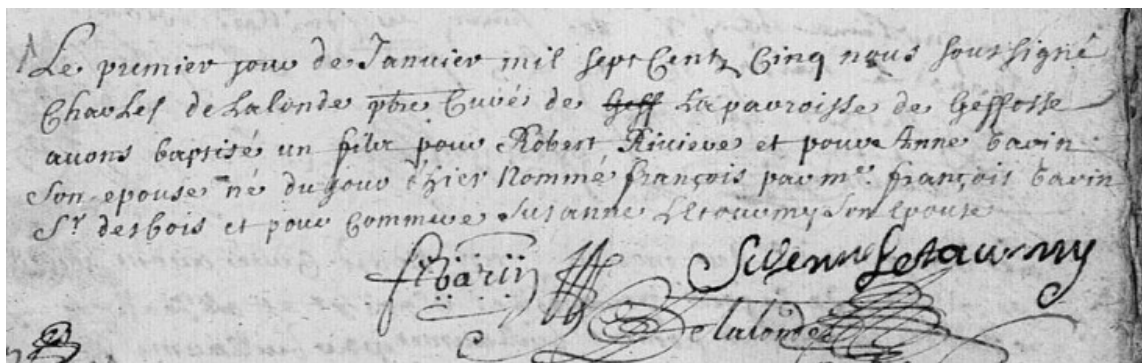 Le premier jour de Janvier mil sept Cent Cinq nous soussigné
Charles de Lalonde pbre Curé de Geff La parroisse de Géffosse
avons baptisé un filx pour Robert Riviere et pour Anne barin
son epouse né du jour d'hier Nommé françois par me. françois barin
Sr. desbois et pour Commere Susanne Letourmy son epouse
f barin Susenne Letourmy
delalonde